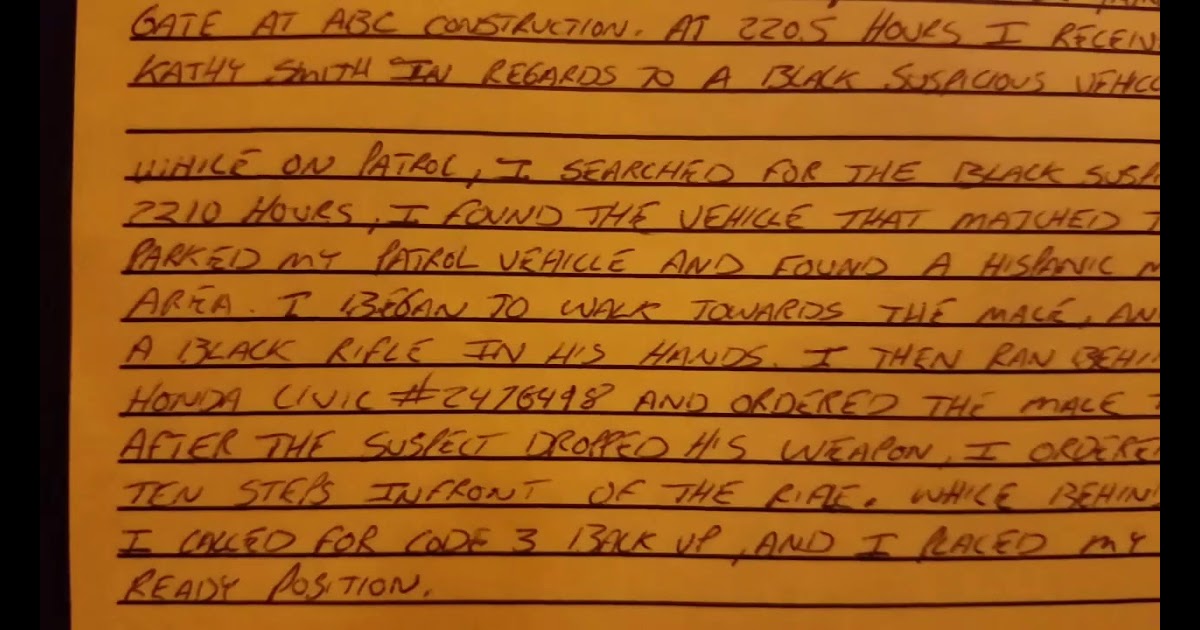 GATE AT ABC CONSTRUCTION. AT 2205 HOURS I RECEIV
KATHY SMITH IN REGARDS TO A BLACK SUSPICIOUS VEHIC
WHILE ON PATROL, I SEARCHED FOR THE BLACK SUSP
2210 HOURS, I FOUND THE VEHICLE THAT MATCHED T
PARKED MY PATROL VEHICLE AND FOUND A HISPANIC M
AREA. I BEGAN TO WALK TOWARDS THE MALE, AN
A BLACK RIFLE IN HIS HANDS. I THEN RAN BEHI
HONDA CIVIC #2476498 AND ORDERED THE MALE
AFTER THE SUSPECT DROPPED HIS WEAPON, I ORDERE
TEN STEPS INFRONT OF THE RIFLE. WHILE BEHIN
I CALLED FOR CODE 3 BACK UP, AND I PLACED MY
READY POSITION.